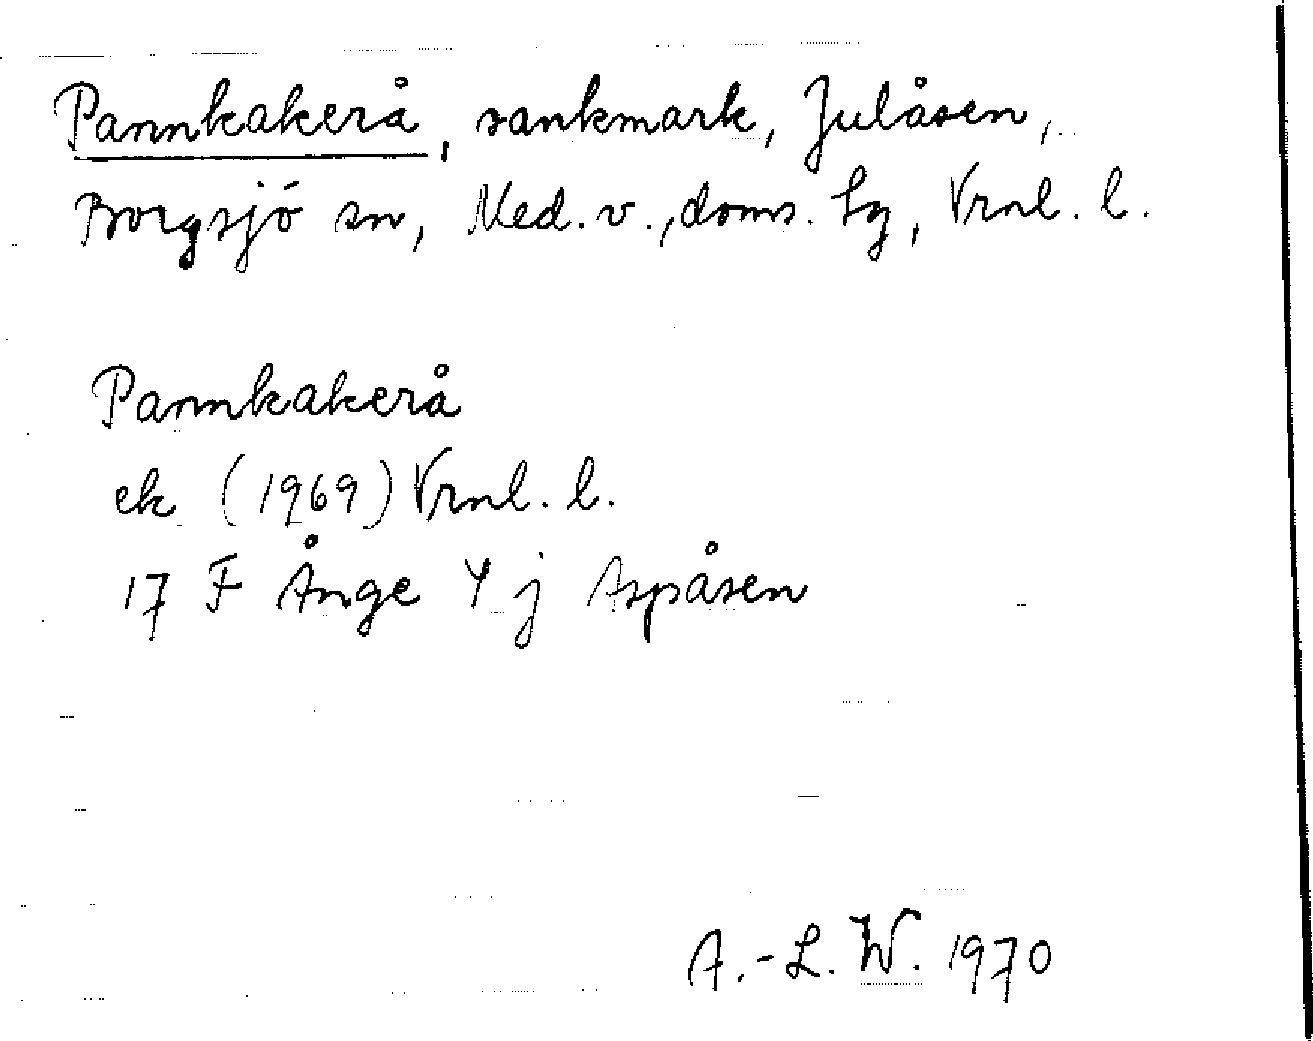 Pannkakerå, sankmark, Julåsen,
Borgsjö sn, Med. v., doms. hg, Vrnl. l.
Pannkakerå
ek (1969) Vrnl. l.
17 F Ånge 4 j Aspåsen
A.-L. W. 1970